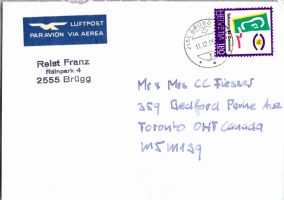 LUFTPOST
PAR AVION VIA AEREA
Relst Franz
Rainpark 4
2555 Brügg
HELVETIA 180
Mr x Mrs CC Fiesser
359 Bedford Parke Ave
Toronto ONT Canada
M5M1J9